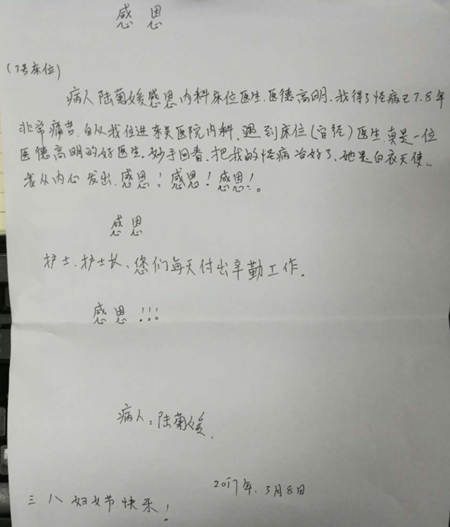 感恩
(7号床位)
病人陆菊媛感恩内科床位医生.医德高明.我得了怪病已7.8年
非常痛苦.自从我住进东吴医院内科.遇到床位()医生.真是一位
医德高明的好医生.妙手回春.把我的怪病治好了.她是白衣天使.
我从内心发出.感恩!感恩!感恩!.
感恩
护士.护士长.您们每天付出辛勤工作.
感恩!!!
病人:陆菊媛.
2017年.3月8日
三八妇女节快乐!